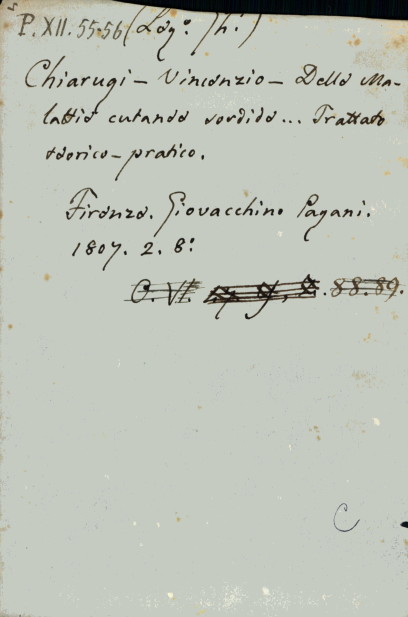 P. XII. 55-56 (Leg.o in 1)
Chiarugi - Vincenzio - Delle Ma-
lattie cutanee sordide... Trattato
teorico-pratico.
Firenze. Giovacchino Pagani.
1807. 2. 8.o
O. VI. 88.89.
C